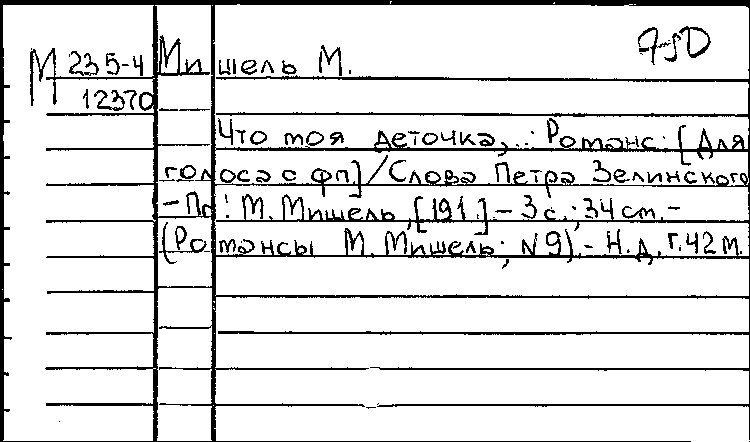 М 235-4 Мишель М.
12370
Что моя деточка,..: Романс: [Для
голоса с фп] / Слова Петра Зелинского
- Пг: М. Мишель, [191.] - 3 с.; 34 см. -
(Романсы М. Мишель; N 9). - Н.д. г. 42 м.